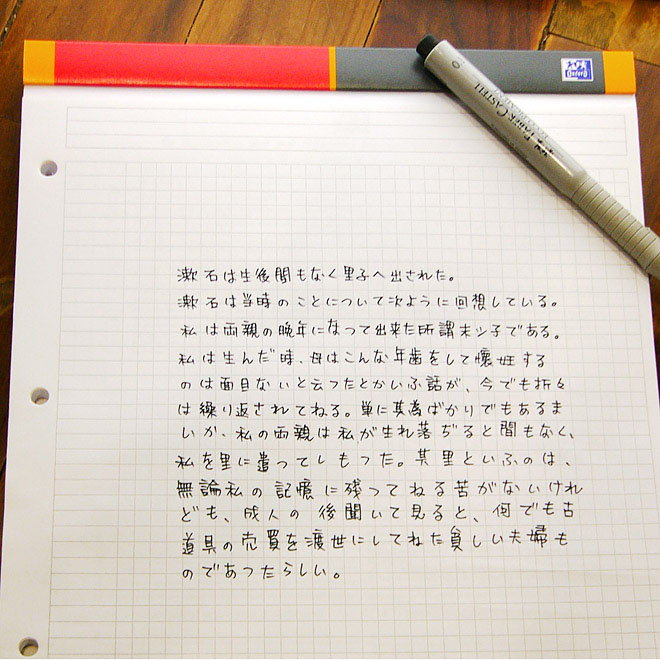 Oxford
FABER-CASTELL
漱石は生後間もなく里子へ出された。
漱石は当時のことについて次ように回想している。
私は両親の晩年になって出来た所謂末ッ子である。
私は生んだ時、母はこんな年歯をして懐妊する
のは面目ないと云つたとかいふ話が、今でも折々
は繰り返されてねる。単に其為ばかりでもあるま
いか、私の両親は私が生れ落ぢると間もなく、
私を里に遣ってしもつた。其里といふのは、
無論私の記憶に残ってねる苦がないけれ
ども、成人の後聞いて見ると、何でも古
道具の売買を渡世にしてねた貧しい夫婦も
のであつたらしい。